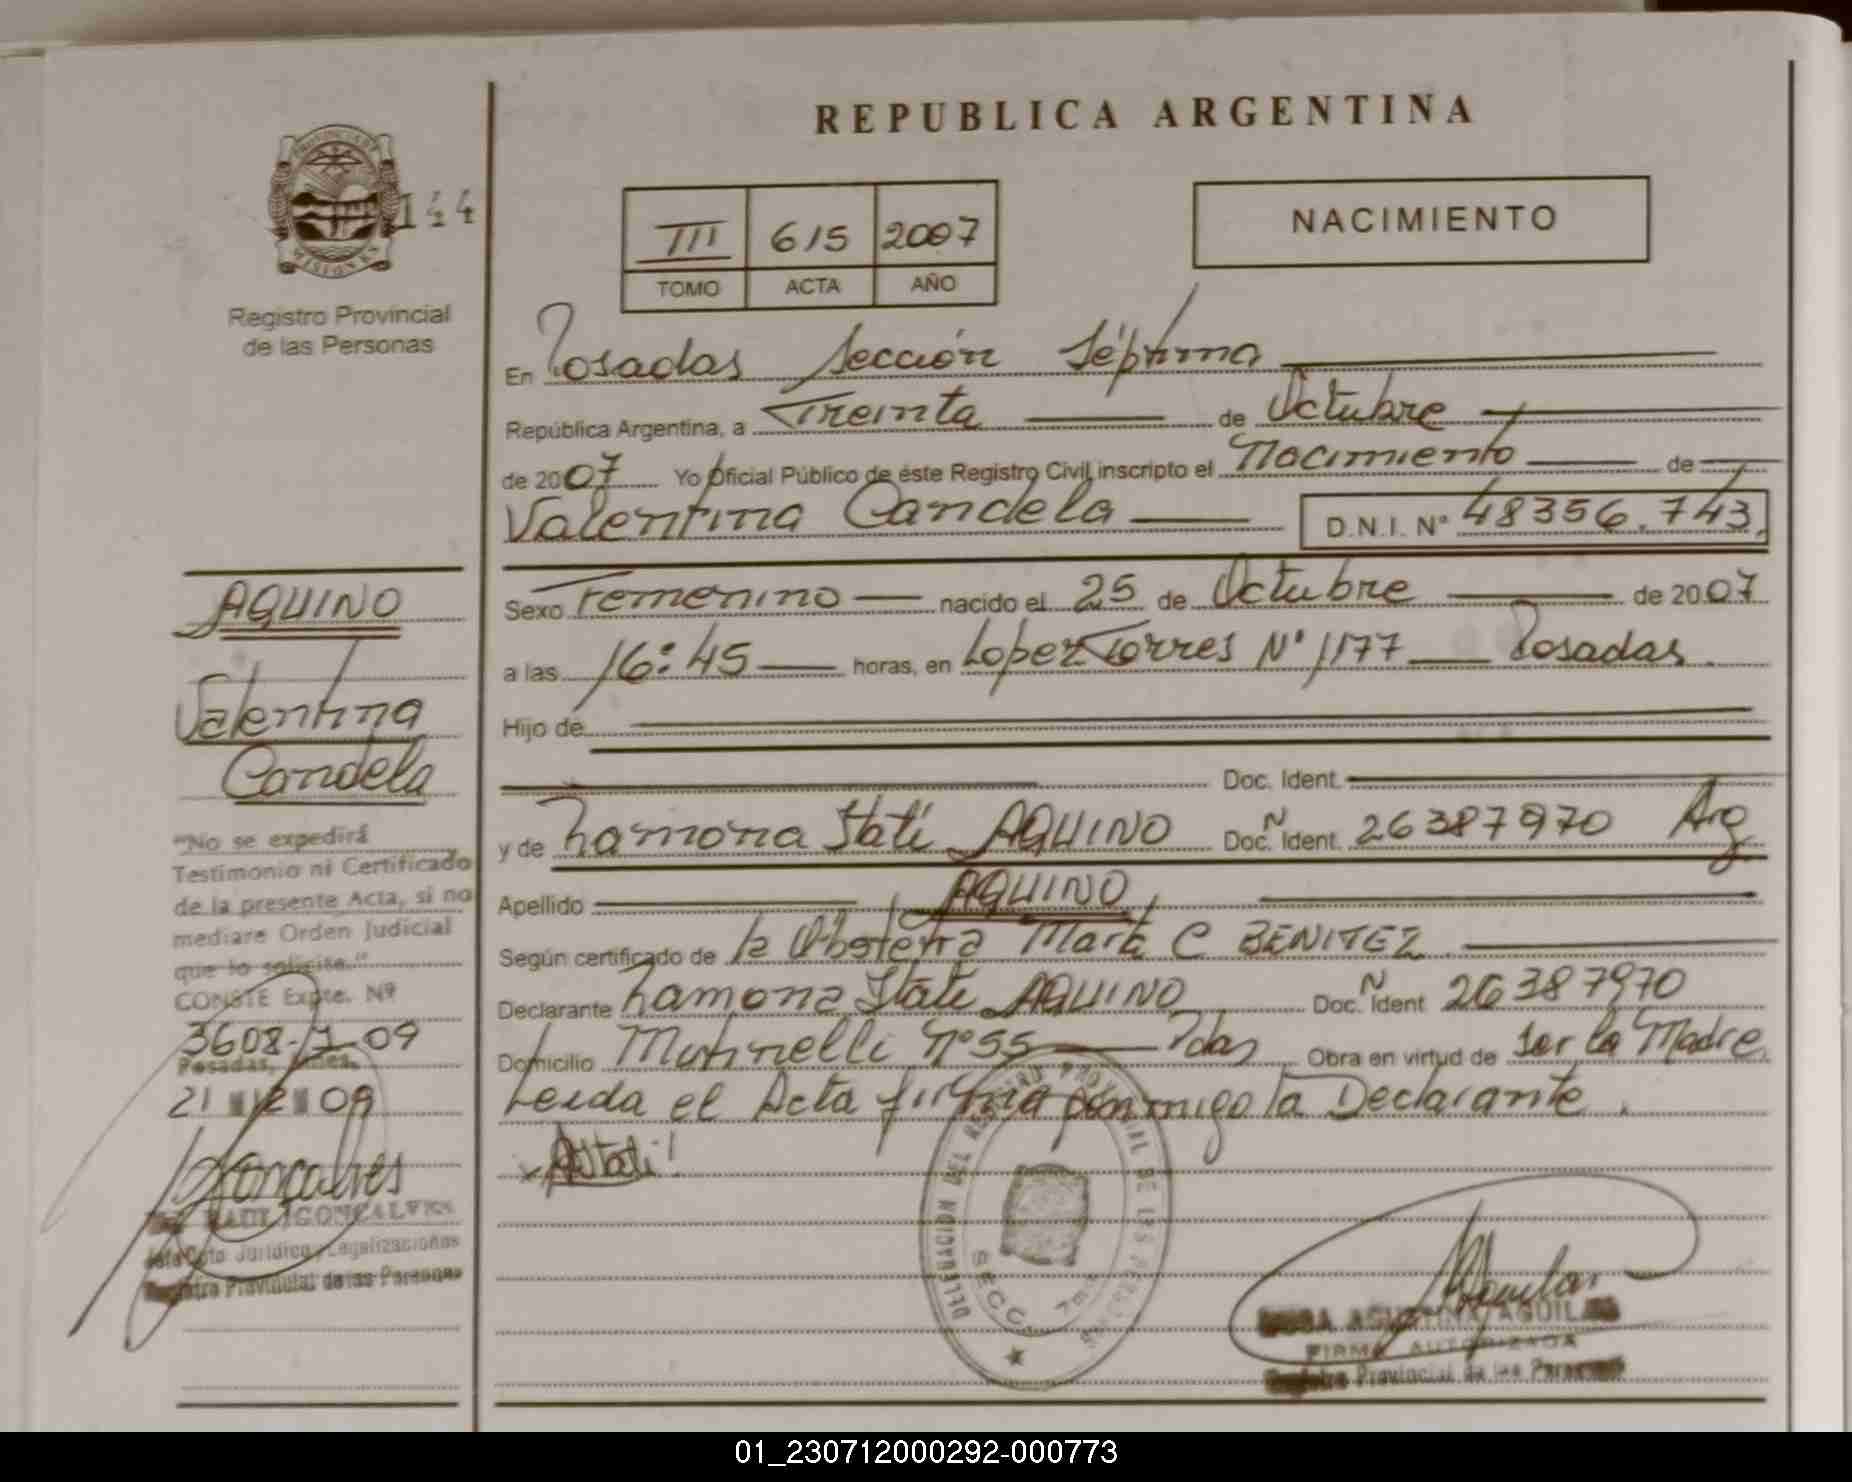 REPUBLICA ARGENTINA
PROVINCIA DE
MISIONES
144
Registro Provincial
de las Personas
III 615 2007
TOMO ACTA AÑO
NACIMIENTO
En Posadas Sección Séptima
República Argentina, a Treinta de Octubre
de 2007 Yo Oficial Público de éste Registro Civil inscripto el Nacimiento de
Valentina Candela D.N.I. N° 48356.743.
Sexo Femenino nacido el 25 de Octubre de 2007
a las 16:45 horas, en Lopez Torres N° 1177 Posadas.
Hijo de
Doc. Ident.
y de Ramona Itati AQUINO Doc. N Ident. 26387970 Arg
Apellido AQUINO
Según certificado de la Obstetra Marta C BENITEZ
Declarante Ramona Itati AQUINO Doc. N Ident 26387970
Domicilio Mutinelli N°55 Pdas Obra en virtud de Ser la Madre
Leida el Acta firma conmigo la Declarante.
AQUINO
Valentina
Candela
"No se expedirá
Testimonio ni Certificado
de la presente Acta, si no
mediare Orden Judicial
que lo solicite."
CONSTE Expte. Nº
3608-J-09
Posadas, Mnes.
21 12 09
Gonçalves
RAUL GONCALVES
Jefe Dpto Jurídico y Legalizaciones
Registro Provincial de las Personas
AItati
DELEGACION DEL REGISTRO PROVINCIAL DE LAS PERSONAS
SECC. 7ma
AGUSTINA AGUILAR
FIRMA AUTORIZADA
Registro Provincial de las Personas
01_230712000292-000773